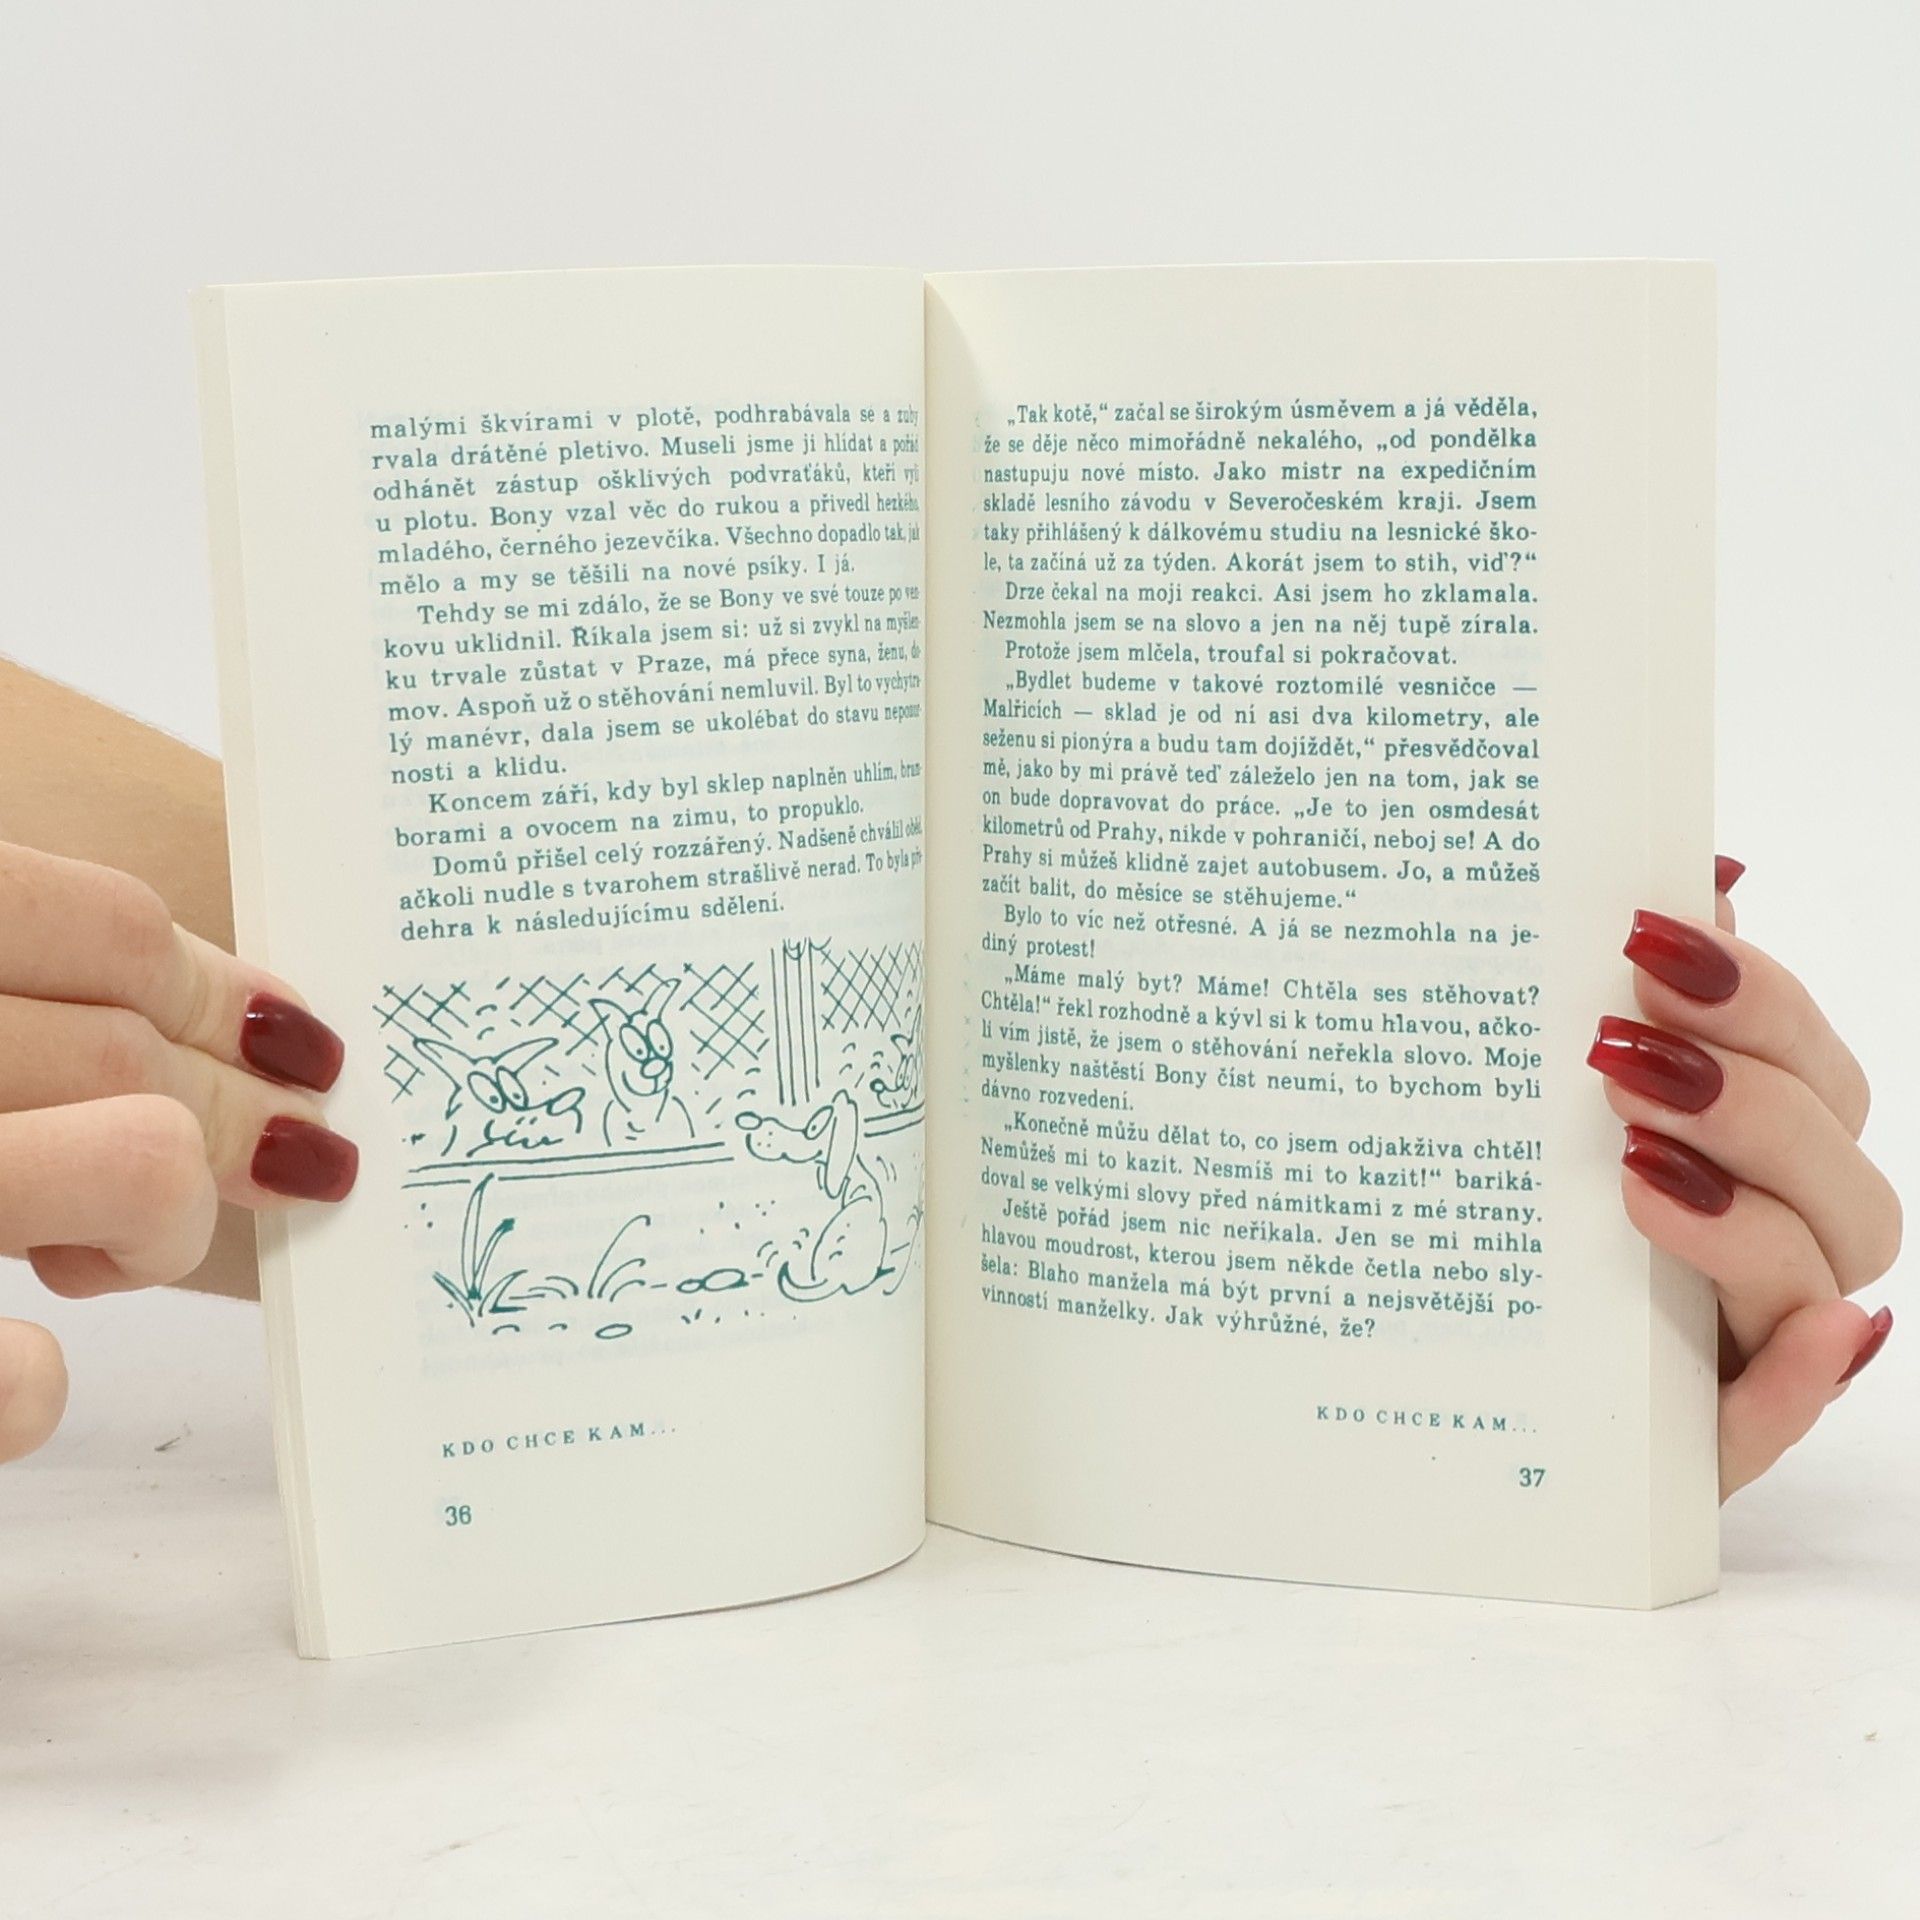 malými škvírami v plotě, podhrabávala se a zuby
rvala drátěné pletivo. Museli jsme ji hlídat a pořád
odhánět zástup ošklivých podvraťáků, kteří vyli
u plotu. Bony vzal věc do rukou a přivedl hezkého,
mladého, černého jezevčíka. Všechno dopadlo tak, jak
mělo a my se těšili na nové psíky. I já.
Tehdy se mi zdálo, že se Bony ve své touze po ven-
kovu uklidnil. Říkala jsem si: už si zvykl na myšlen-
ku trvale zůstat v Praze, má přece syna, ženu, do-
mov. Aspoň už o stěhování nemluvil. Byl to vychytra-
lý manévr, dala jsem se ukolébat do stavu neposor-
nosti a klidu.
Koncem září, kdy byl sklep naplněn uhlím, bram-
borami a ovocem na zimu, to propuklo.
Domů přišel celý rozzářený. Nadšeně chválil oběd,
ačkoli nudle s tvarohem strašlivě nerad. To byla pře-
dehra k následujícímu sdělení.
KDO CHCE KAM...
36
„Tak kotě,“ začal se širokým úsměvem a já věděla,
že se děje něco mimořádně nekalého, „od pondělka
nastupuju nové místo. Jako mistr na expedičním
skladě lesního závodu v Severočeském kraji. Jsem
taky přihlášený k dálkovému studiu na lesnické ško-
le, ta začíná už za týden. Akorát jsem to stih, viď?“
Drze čekal na moji reakci. Asi jsem ho zklamala.
Nezmohla jsem se na slovo a jen na něj tupě zírala.
Protože jsem mlčela, troufal si pokračovat.
„Bydlet budeme v takové roztomilé vesničce —
Malřicích — sklad je od ní asi dva kilometry, ale
seženu si pionýra a budu tam dojíždět,“ přesvědčoval
mě, jako by mi právě teď záleželo jen na tom, jak se
on bude dopravovat do práce. „Je to jen osmdesát
kilometrů od Prahy, nikde v pohraničí, neboj se! A do
Prahy si můžeš klidně zajet autobusem. Jo, a můžeš
začít balit, do měsíce se stěhujeme.“
Bylo to víc než otřesné. A já se nezmohla na je-
diný protest!
„Máme malý byt? Máme! Chtěla ses stěhovat?
Chtěla!“ řekl rozhodně a kývl si k tomu hlavou, ačko-
li vím jistě, že jsem o stěhování neřekla slovo. Moje
myšlenky naštěstí Bony číst neumí, to bychom byli
dávno rozvedení.
„Konečně můžu dělat to, co jsem odjakživa chtěl!
Nemůžeš mi to kazit. Nesmíš mi to kazit!“ bariká-
doval se velkými slovy před námitkami z mé strany.
Ještě pořád jsem nic neříkala. Jen se mi mihla
hlavou moudrost, kterou jsem někde četla nebo sly-
šela: Blaho manžela má být první a nejsvětější po-
vinností manželky. Jak výhrůžné, že?
KDO CHCE KAM...
37